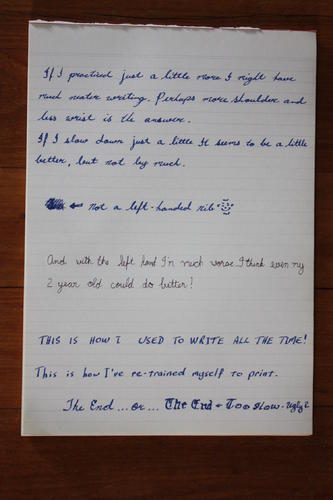 If I practiced just a little more I might have
much neater writing. Perhaps more shoulder and
less wrist is the answer.
If I slow down just a little it seems to be a little
better, but not by much.
← Not a left-handed nib
And with the left hand I'm much worse I think even my
2 year old could do better!
THIS IS HOW I USED TO WRITE ALL THE TIME!
This is how I've re-trained myself to print.
The End ... or ... The End ← Too slow - ugly